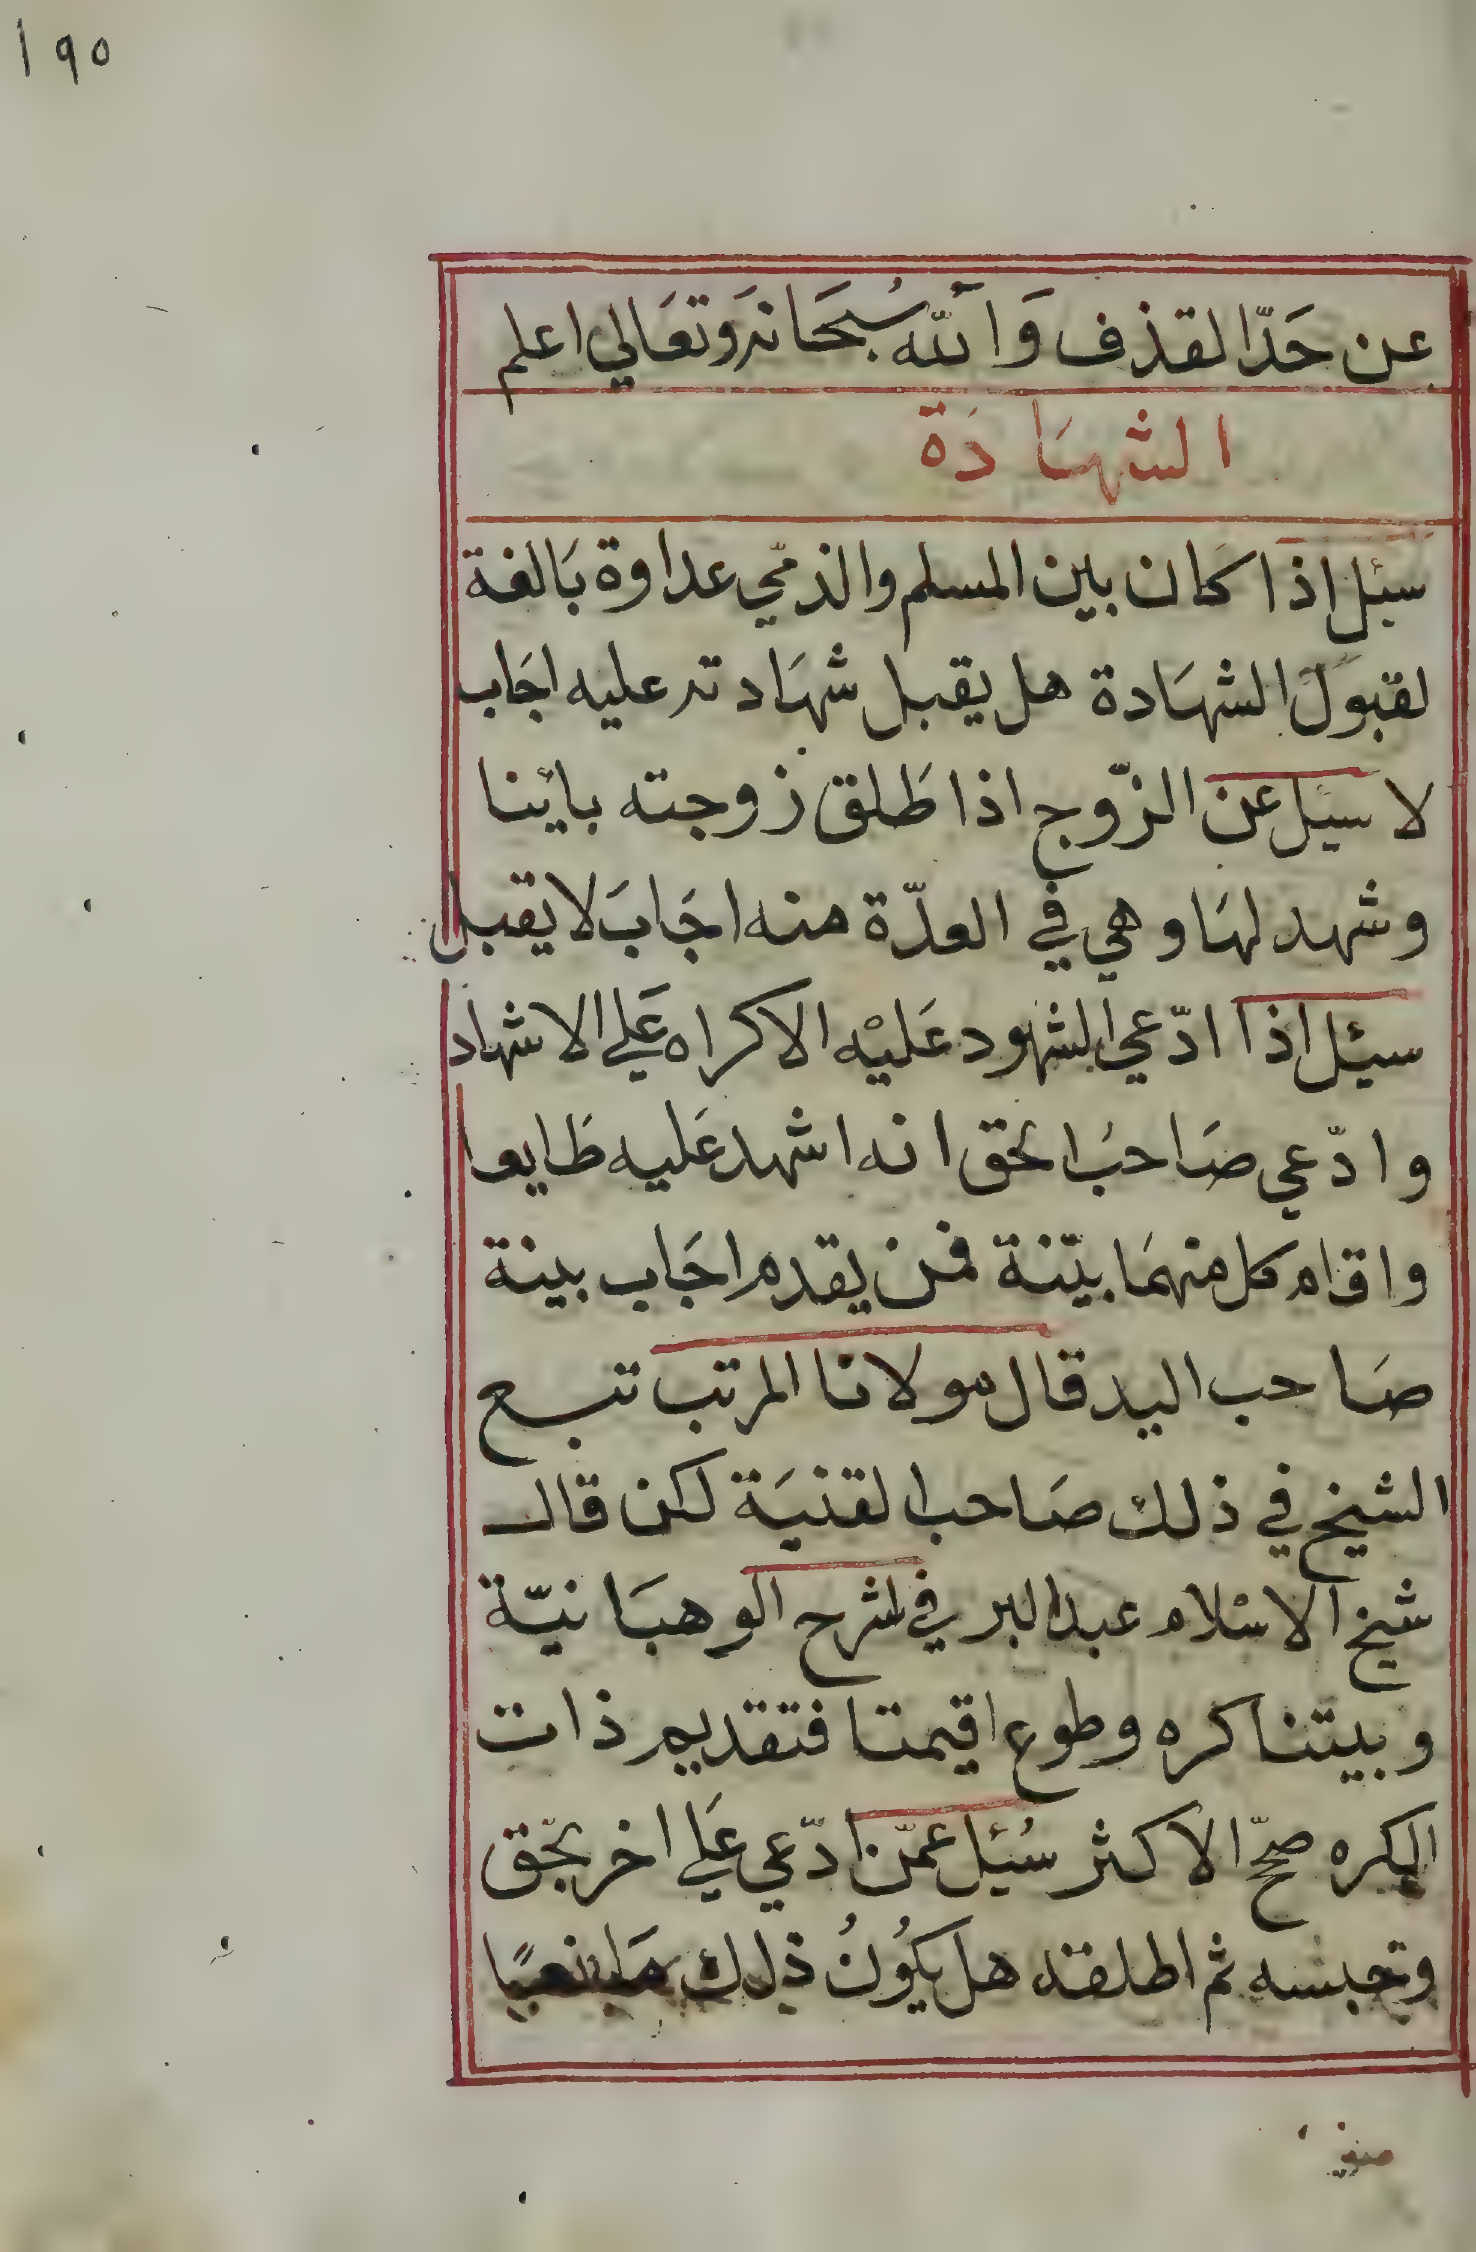 ١٩٥
عن حَدّ القذف وَاللّه سُبحَانه وتعَالي اعلم
الشهَادَة
سئل اذا كان بين المسلم والذمّي عداوة بَالغة
لقبول الشهَادة هل يقبل شهَادته عليه اجَاب
لا سئل عن الزّوج اذا طَلق زوجته باينا
وشهد لهَا وهي في العدّة منه اجَابَ لا يقبل
سئل اذا ادّعي الشهود عَليْه الاكراه عَلي الاشهاد
وادّعي صَاحبُ الحق انه اشهد عَليه طَايعا
واقام كل منهمَا بيّنة فمن يقدم اجَاب بينة
صَاحب اليد قال مولانا المرتب تبع
الشيخ في ذلك صَاحب القنيَة لكن قال
شيخ الاسْلام عبد البر في شرح الوهبَانيّة
وبيتنا كره وطوع اقيمتا فتقديم ذات
الكره صحّ الاكثر سُئل عمّن ادّعي عَلي اخر بحّق
وحبسه ثم اطلقه هل يكوُنُ ذلك